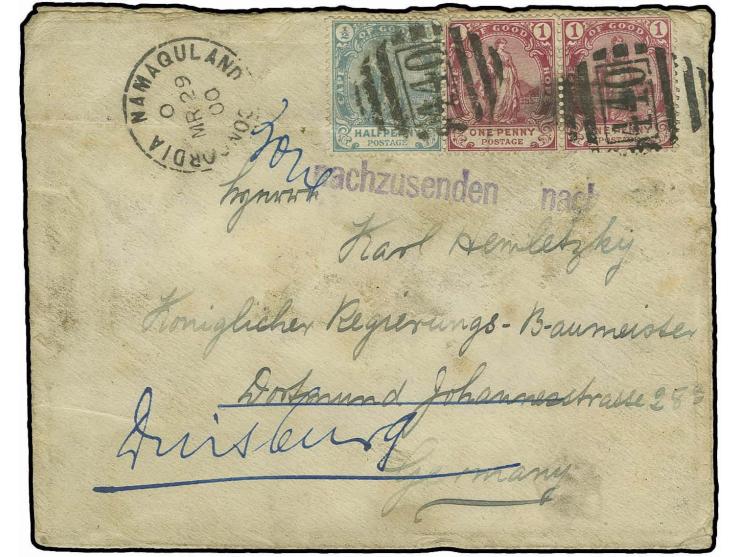 ½ 1 1
CAPE OF GOOD HOPE OF GOOD HOPE OF GOOD
HALFPENNY POSTAGE ONE PENNY POSTAGE POSTAGE
440 440
NAMAQULAND
MR 29
00
nachzusenden nach
Herrn
Karl Hemletzky
Königlicher Regierungs-Baumeister
Dortmund Johannesstrasse 28
Duisburg
Germany